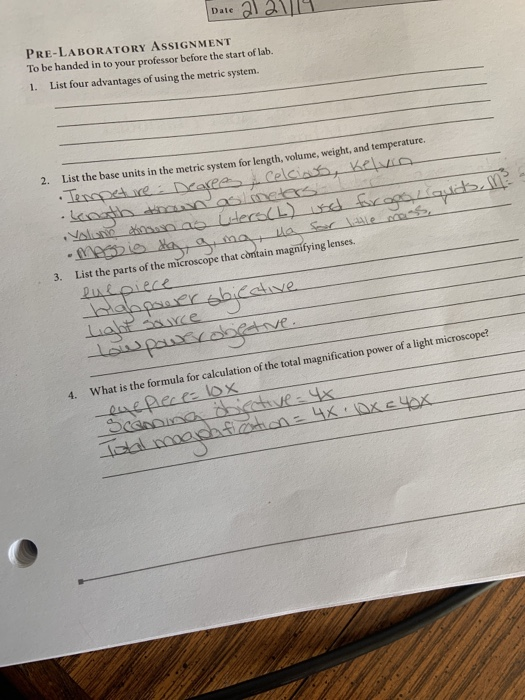 Date 2/21/19
PRE-LABORATORY ASSIGNMENT
To be handed in to your professor before the start of lab.
1. List four advantages of using the metric system.
2. List the base units in the metric system for length, volume, weight, and temperature.
Degrees Celcious, Kelvin
• Length known as meters
known as Liters (L) used for gas/liquids, m³
• Mass is Kg, g, mg, ug for little mass.
3. List the parts of the microscope that contain magnifying lenses.
eyepiece
high power objective
Light source
Low power objective.
4. What is the formula for calculation of the total magnification power of a light microscope?
eyepiece = 10x
Scanning objective = 4x
Total = 4x · 10x = 40x